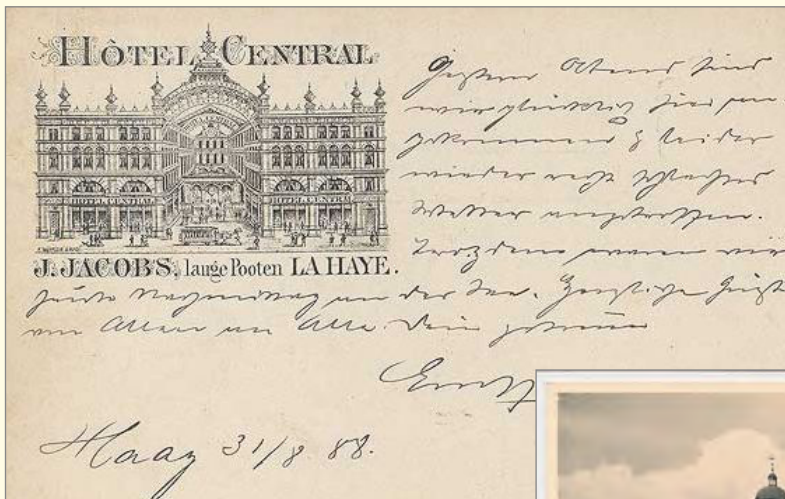 HÔTEL CENTRAL
HOTEL CENTRAL HOTEL CENTRAL
J. JACOBS, lange Pooten LA HAYE.
Gestern Abend sind
wir glücklich hier an
gekommen & leider
wieder recht schlechtes
Wetter angetroffen.
Trozdem waren wir
heute Nachmittag an der See. Herzliche
von Allen an Alle. Dein getreuer
Ernst
Haag 31/8 88.